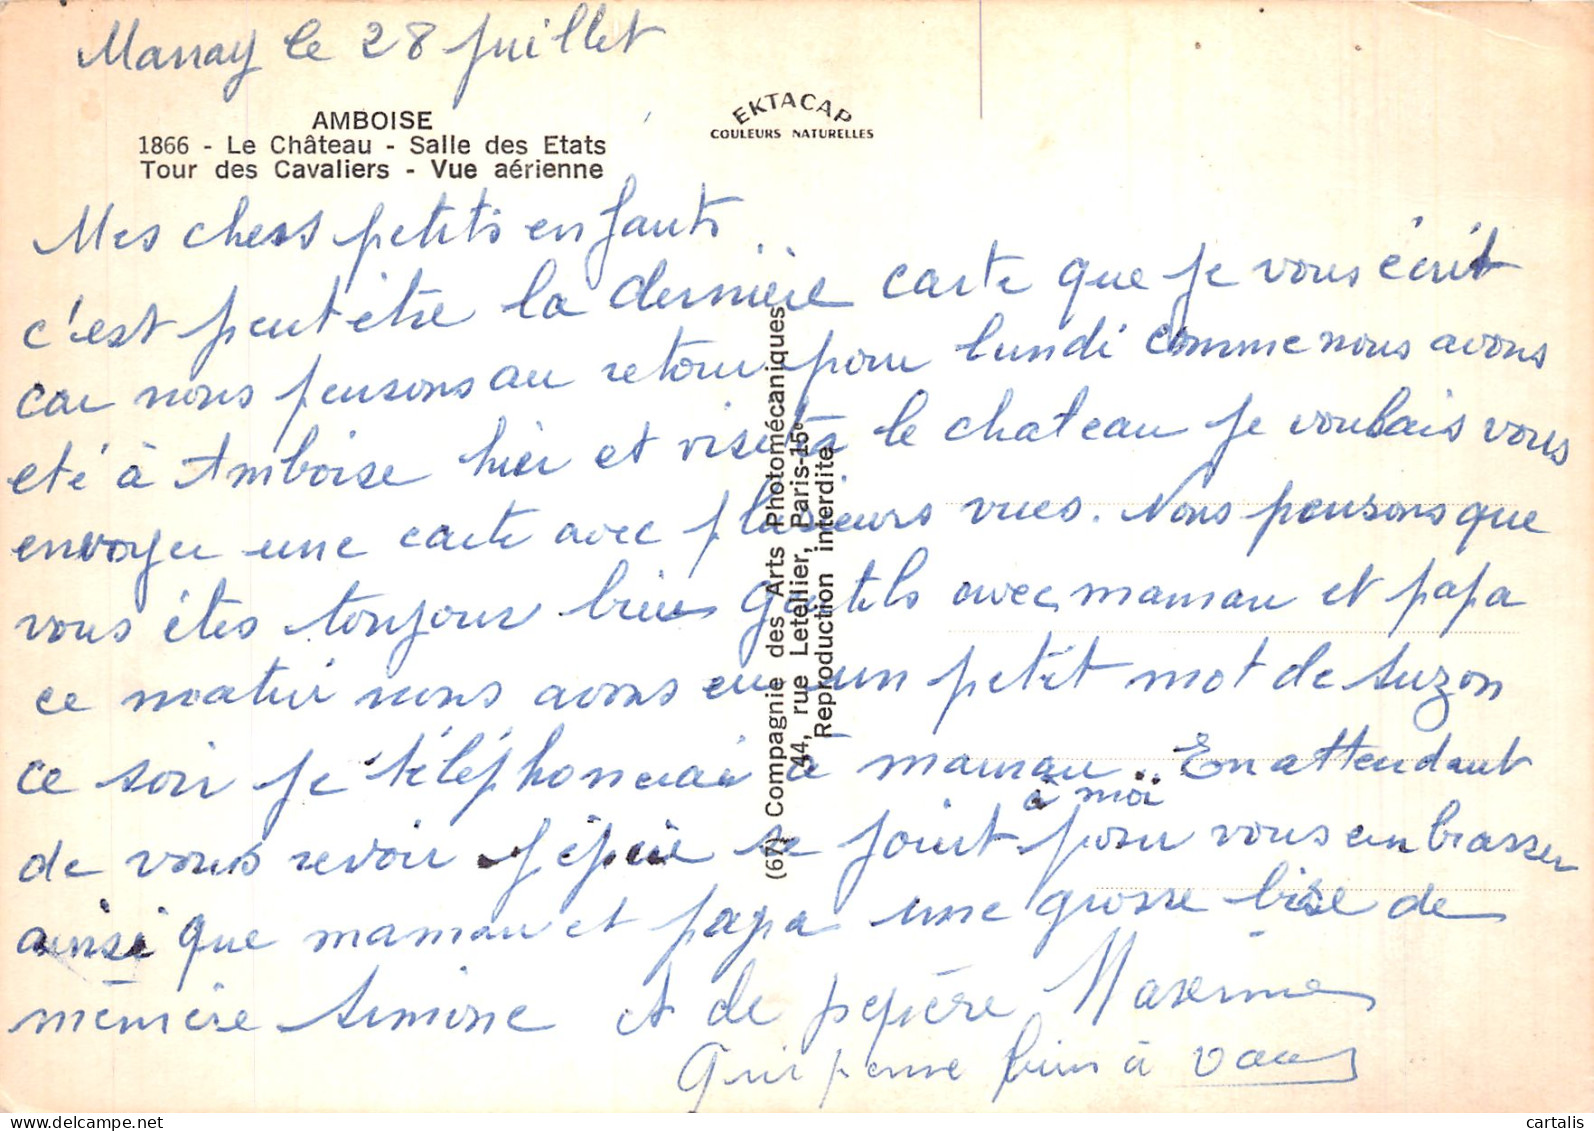 Marray le 28 juillet
AMBOISE
1866 - Le Château - Salle des Etats
Tour des Cavaliers - Vue aérienne
EKTACAP
COULEURS NATURELLES
Mes chers petits enfants
c'est peut être la dernière carte que je vous écrit
car nous pensons au retour pour lundi comme nous avons
eté à Amboise hier et visité le chateau je voulais vous
envoyer une carte avec plusieurs vues. Nous pensons que
vous êtes toujour bien gentils avec maman et papa
ce matin nous avons eu un petit mot de Suzon
ce soir je téléphonerai à maman.. En attendant
de vous revoir pépère se joint à moi pour vous embrasser
ainsi que maman et papa une grosse bise de
mémère Simone et de pépère Maxime
Qui pense bien à vous
(67) Compagnie des Arts Photomécaniques
44, rue Letellier, Paris-15e
Reproduction interdite
cartalis
www.delcampe.net